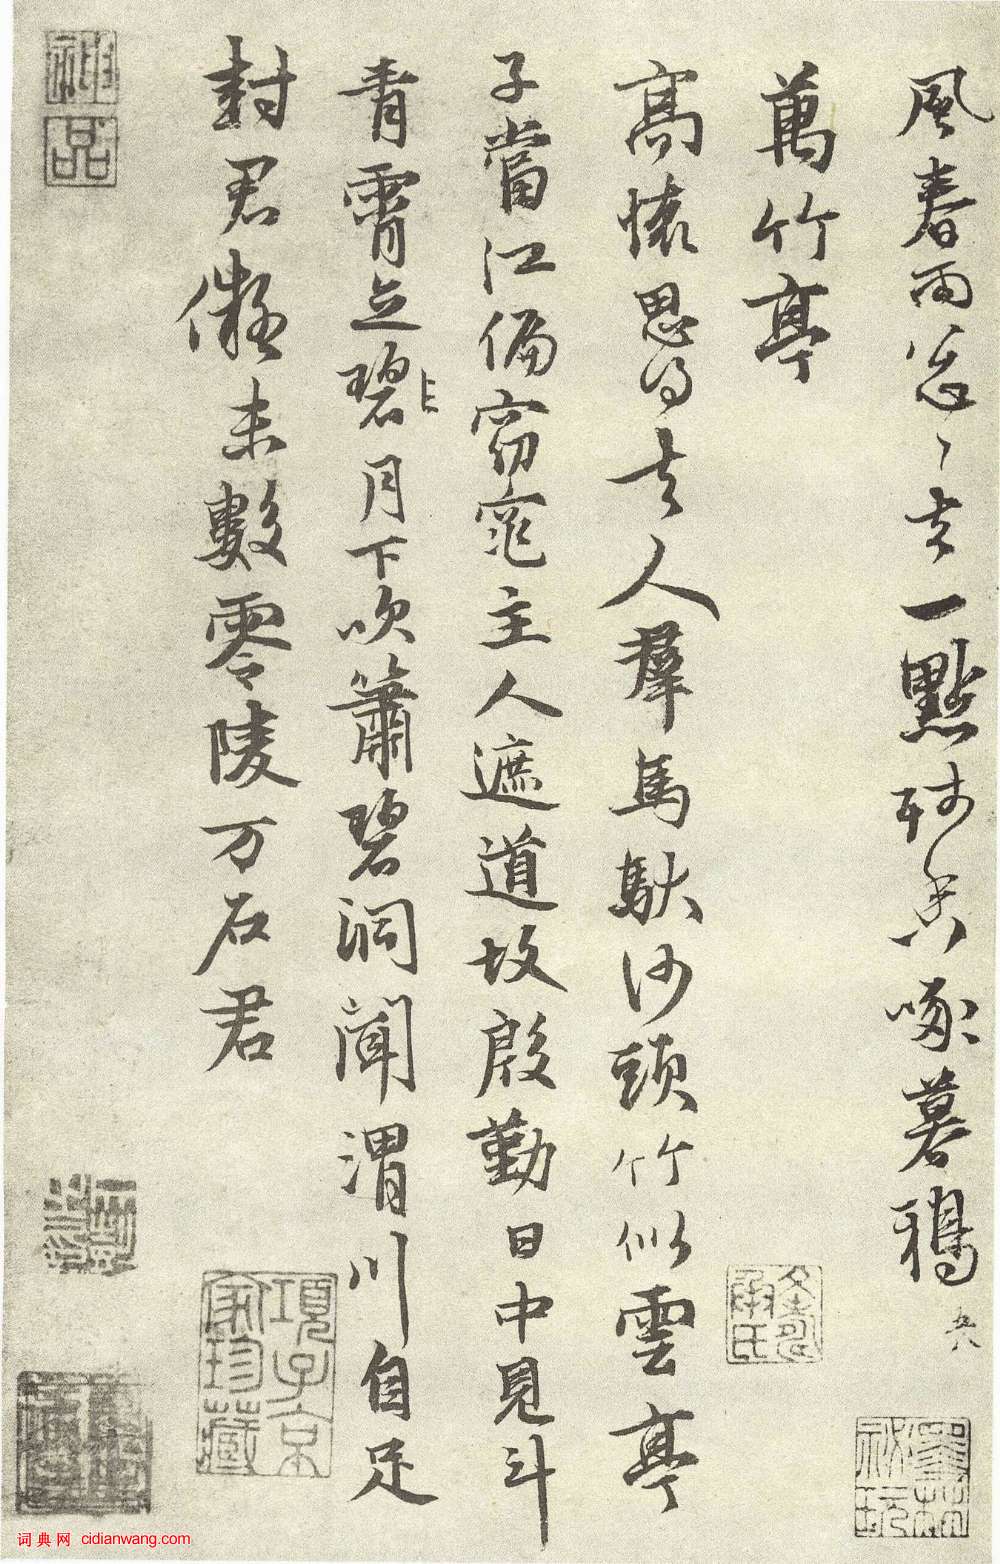 風春雨去一點啄暮鴉
萬竹亭
高懷思人羣馬馱沙頭竹似雲亭
子當江偏窈窕主人遮道故殷勤日中見斗
青霄立碧月下吹簫碧洞聞渭川自足
封君儗未數零陵万石君
神品
項子京家珍藏
墨林祕玩
词典网 cidianwang.com